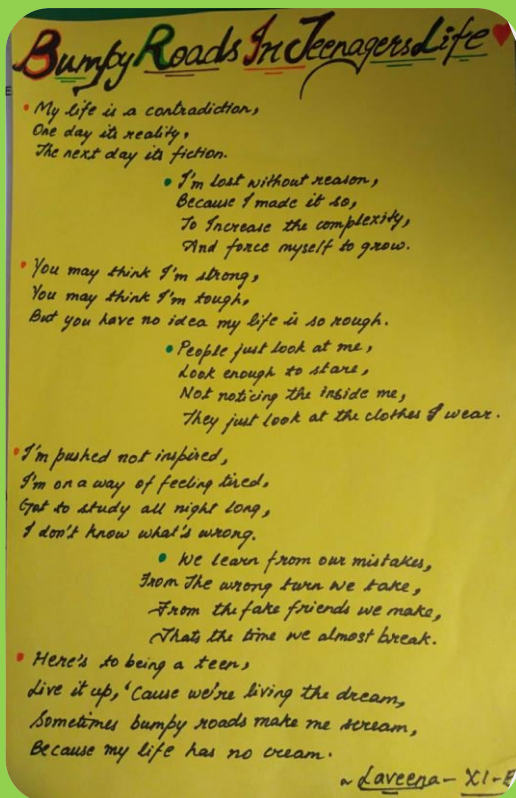 Bumpy Roads In Teenagers Life
• My life is a contradiction,
One day its reality,
The next day its fiction.
• I'm lost without reason,
Because I made it so,
To Increase the complexity,
And force myself to grow.
• You may think I'm strong,
You may think I'm tough,
But you have no idea my life is so rough.
• People just look at me,
Look enough to stare,
Not noticing the inside me,
They just look at the clothes I wear.
• I'm pushed not inspired,
I'm on a way of feeling tired,
Got to study all night long,
I don't know what's wrong.
• We learn from our mistakes,
From The wrong turn we take,
From the fake friends we make,
Thats the time we almost break.
• Here's to being a teen,
Live it up, 'Cause we're living the dream,
Sometimes bumpy roads make me scream,
Because my life has no cream.
~ Laveena - XI-E